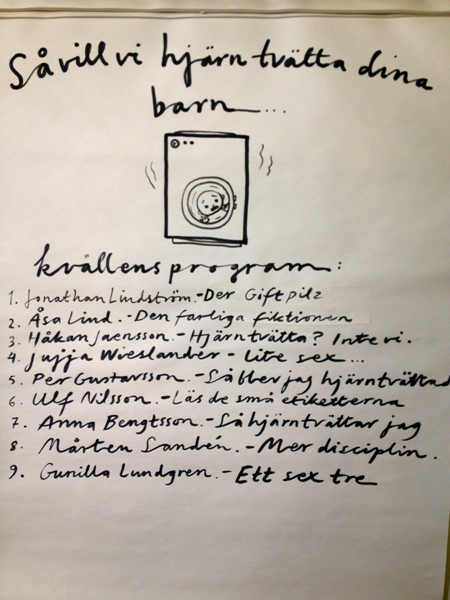 Så vill vi hjärntvätta dina
barn...
kvällens program:
1. Jonathan Lindström.-Der Giftpilz
2. Åsa Lind.-Den farliga fiktionen
3. Håkan Jaensson.-Hjärntvätta? Inte vi.
4. Jujja Wieslander-Lite sex...
5. Per Gustavsson.-Så blev jag hjärntvättad
6. Ulf Nilsson.-Läs de små etiketterna
7. Anna Bengtsson.-Så hjärntvättar jag
8. Mårten Sandén.-Mer disciplin.
9. Gunilla Lundgren.-Ett sex tre